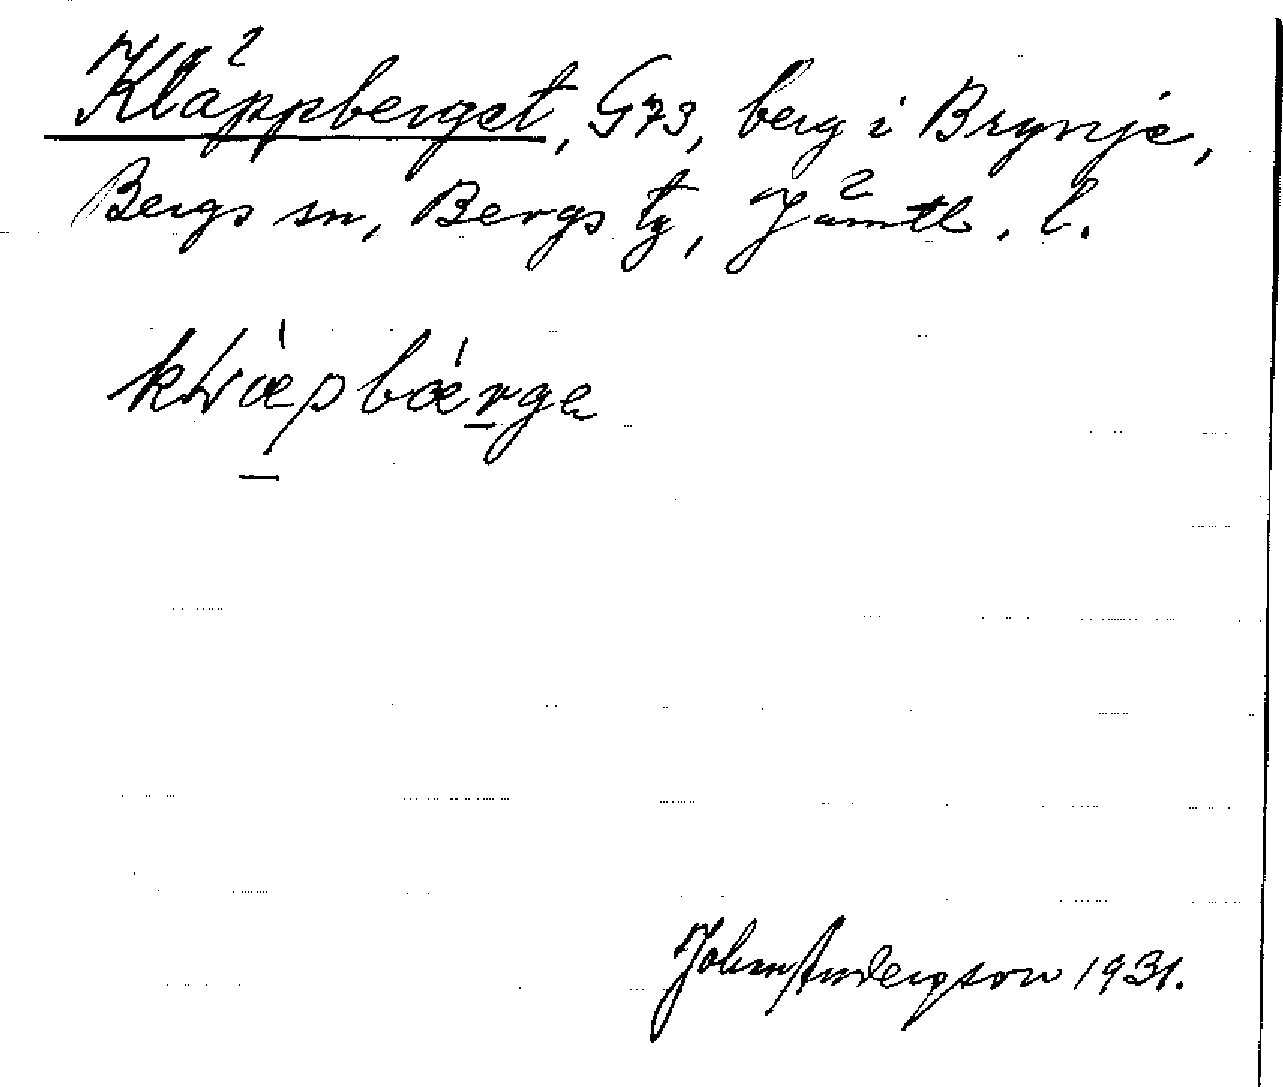 Kläppberget, G73, berg i Brynje,
Bergs sn, Bergs tg, Jämtl. l.
Johan Andersson 1931.